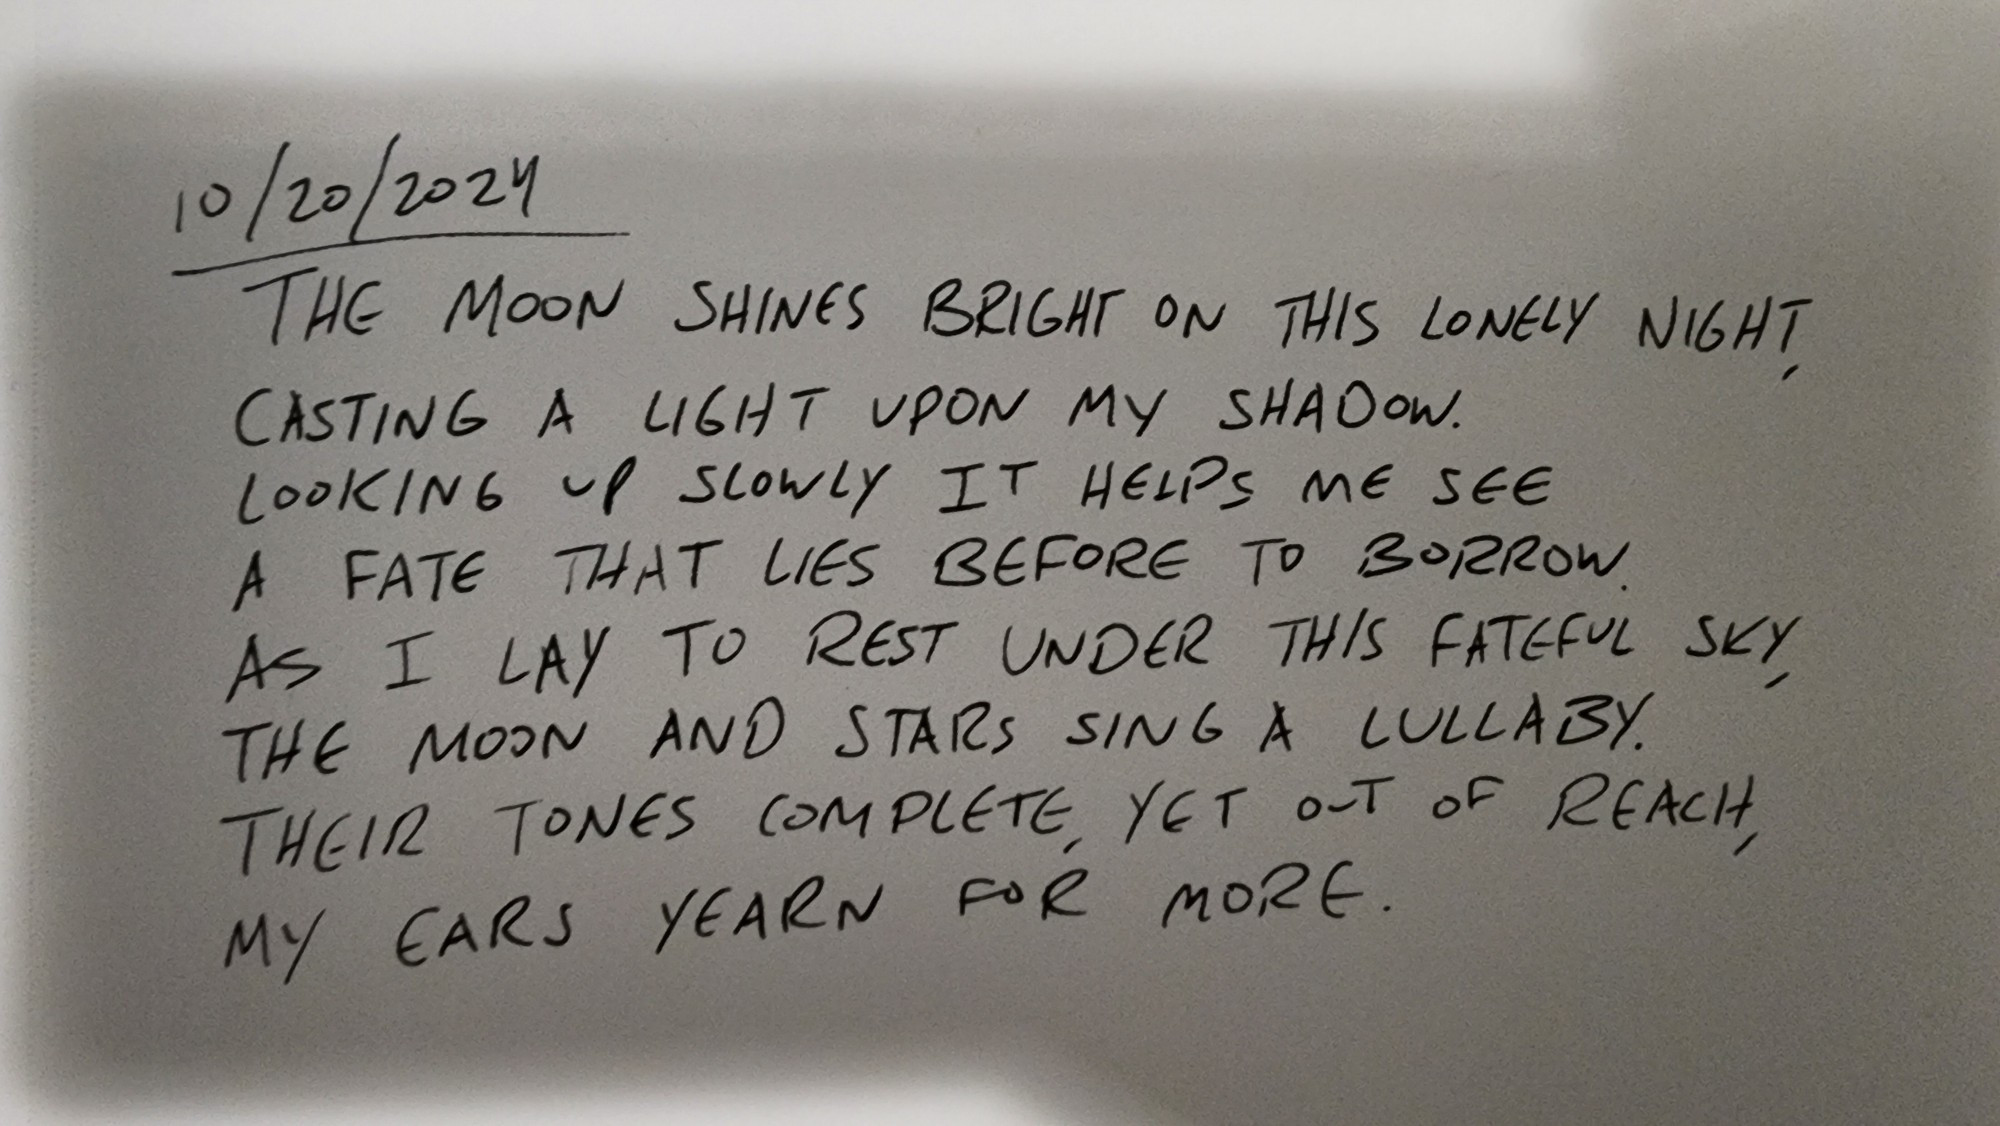 10/20/2024
THE MOON SHINES BRIGHT ON THIS LONELY NIGHT,
CASTING A LIGHT UPON MY SHADOW.
LOOKING UP SLOWLY IT HELPS ME SEE
A FATE THAT LIES BEFORE TO BORROW.
AS I LAY TO REST UNDER THIS FATEFUL SKY,
THE MOON AND STARS SING A LULLABY.
THEIR TONES COMPLETE, YET OUT OF REACH,
MY EARS YEARN FOR MORE.